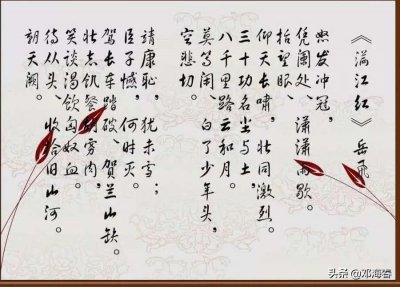 《满江红》岳飞
怒发冲冠,
凭阑处、潇潇雨歇。
抬望眼、
仰天长啸,壮同激烈。
三十功名尘与土,
八千里路云和月。
莫等闲、白了少年头,
空悲切。
靖康耻,犹未雪;
臣子憾,何时灭。
驾长车踏破、贺兰山缺。
壮志饥餐肉,
笑谈渴饮匈奴血。
待从头、收拾旧山河。
朝天阙。
头条 @邓海春